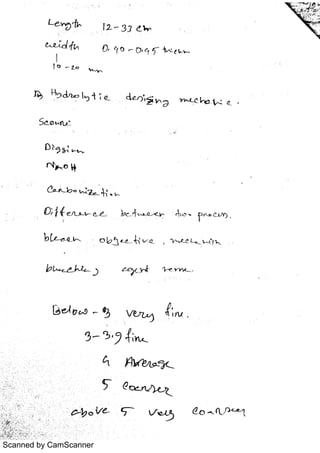 Length 12-33 cm
width 0.90-0.95
10-20 mm
Hydrolytic desizing mechanic.
Scour:
NaOH
Carbonization
Difference between two process.
bleach objective, mechanism
bleaching agent
Below - 3 very fine.
3-3.9 fine
4 Average
5 coarser
above 5 very coarser
Scanned by CamScanner